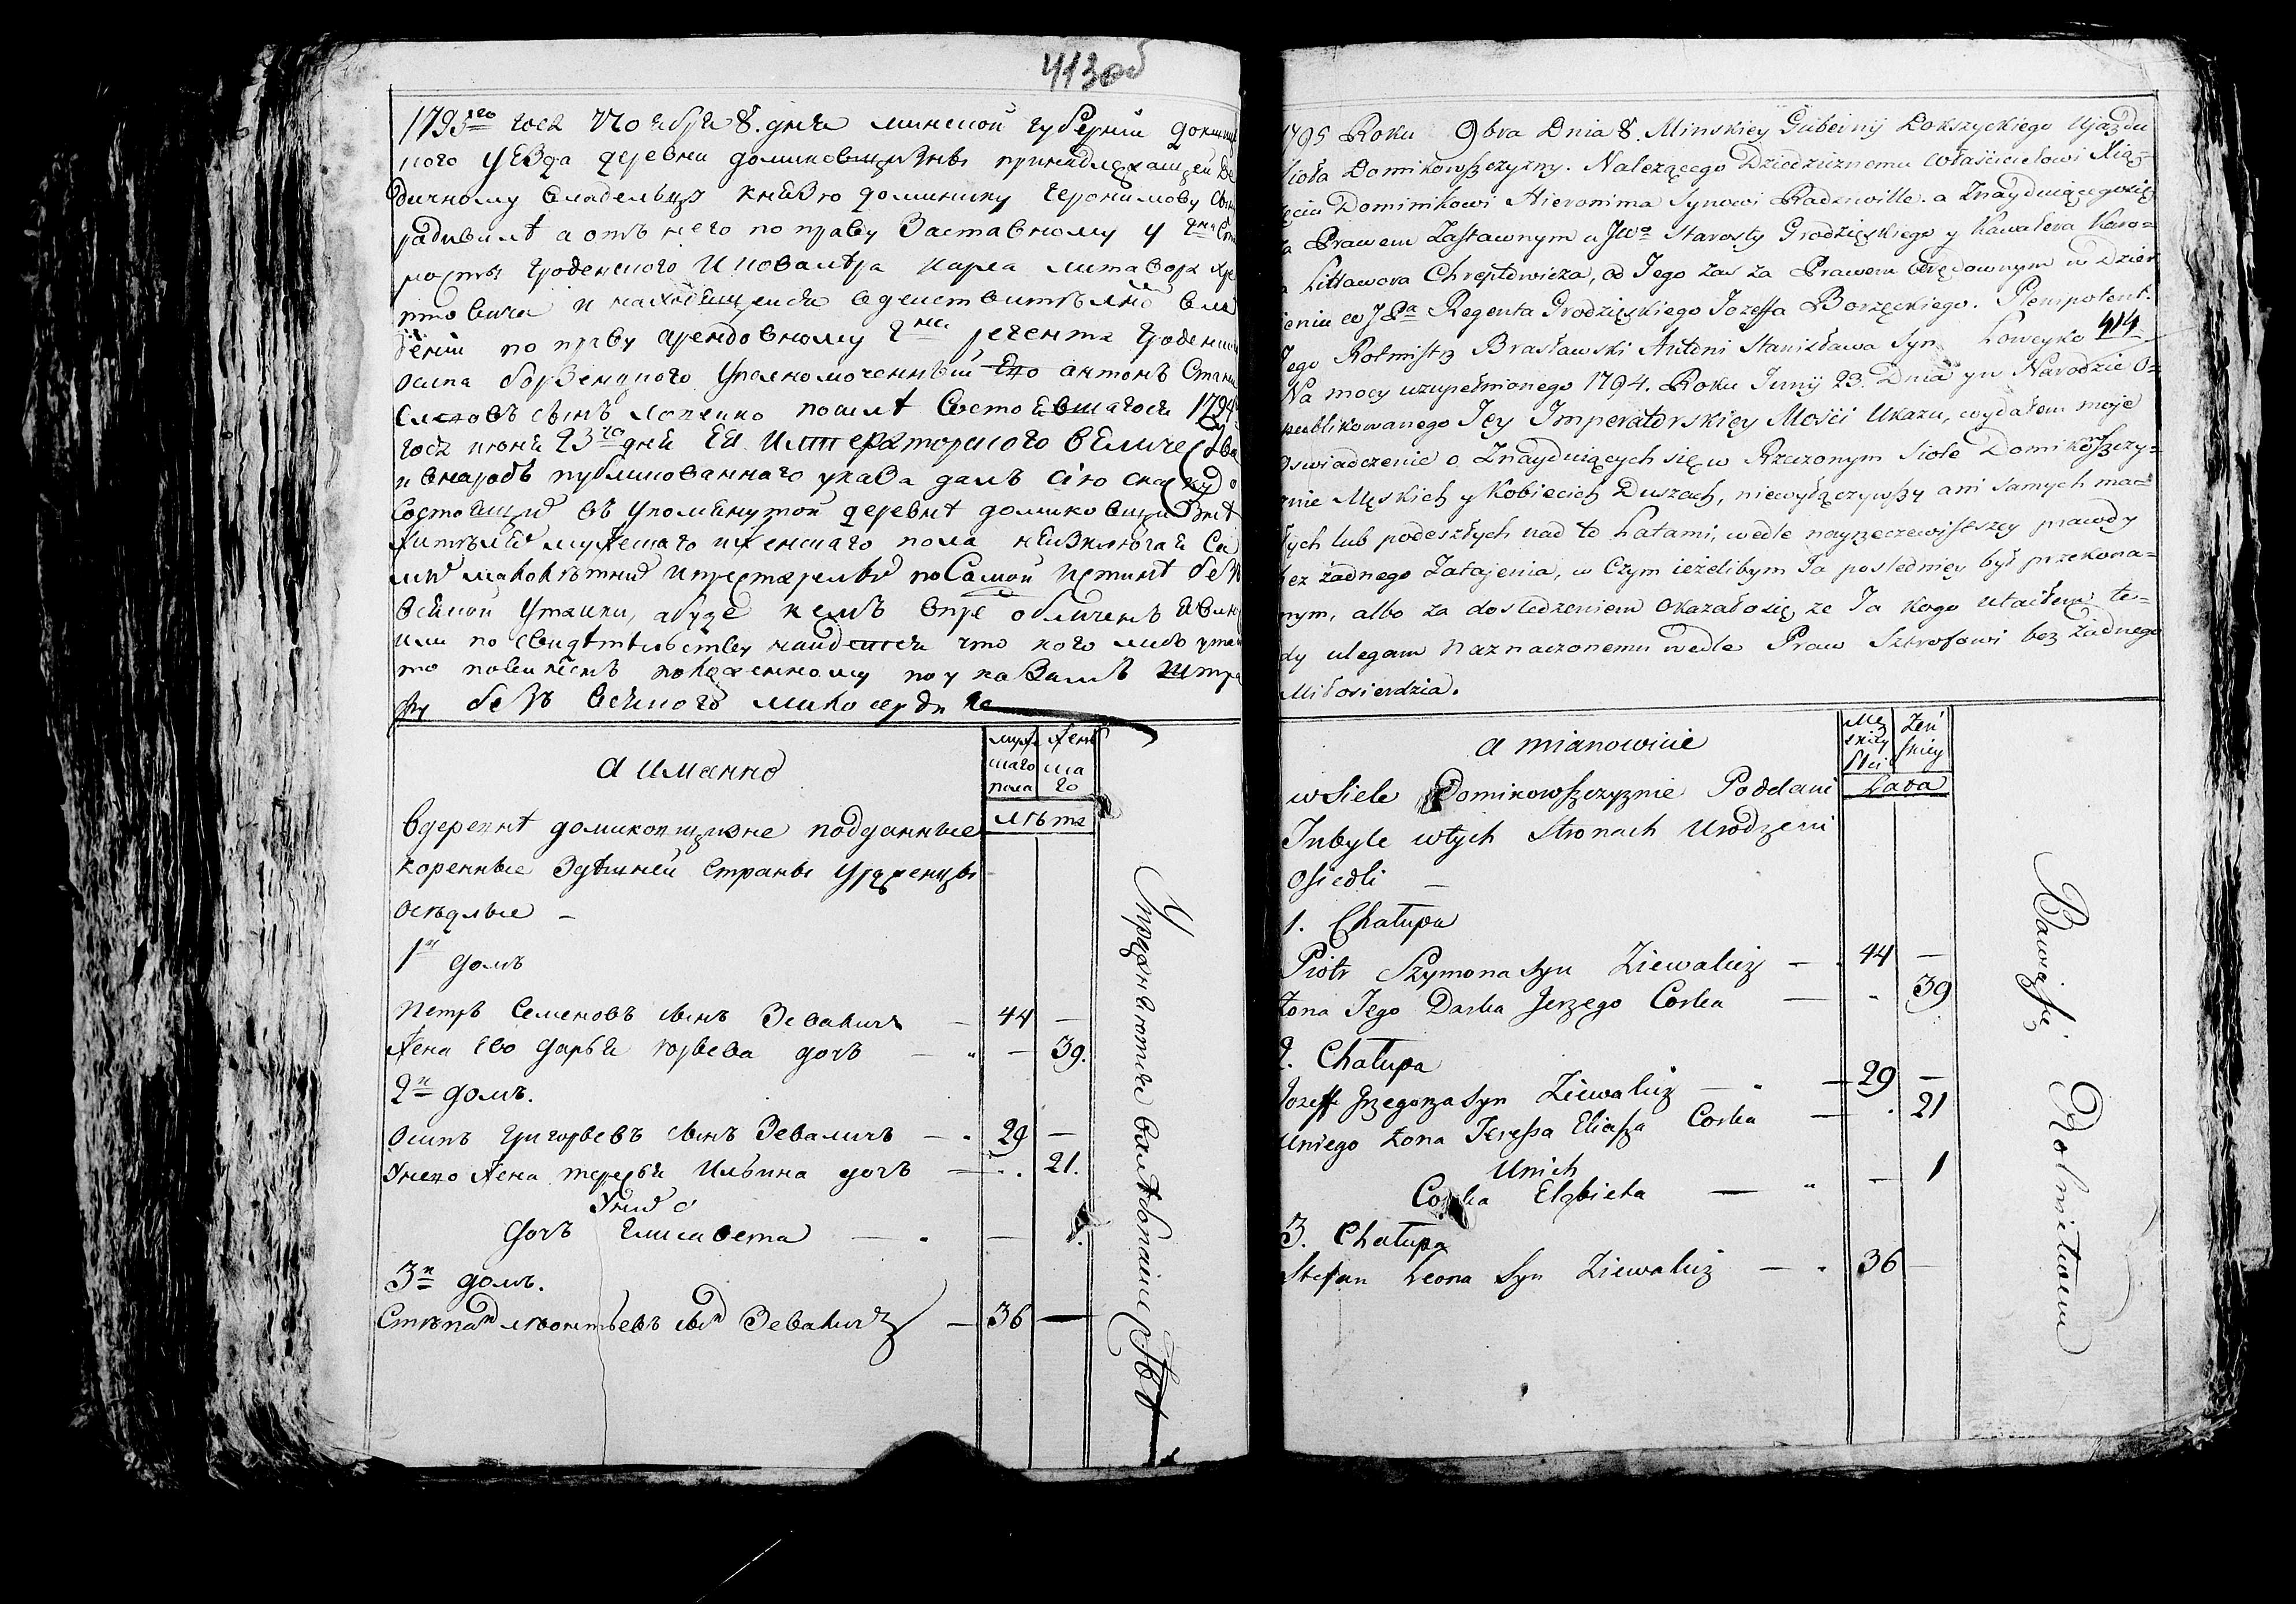 413об
1795го года Ноября 8. дня минской губернии докшиц
кого уезда деревни домиковщизны принадлежащей де
дичному владельцу князю доминику иеронимову сыну
радивилѣ а отъ него по праву заставному у гна ста
росты гроденского и кавалѣра карла литавора хре
птовича и находящейся в действительномъ вла
дении по праву арендовному гна регента гроденского
осипа борзенцкого уполномоченный его антонъ стани
славовъ сынъ лопейко послѣ состоявшагося 1794
года июня 23го дня ея императорского величества
и внародъ публикованнаго указа далъ сию сказку о
состоящихъ въ упомянутой деревнѣ домиковщизнѣ
жителяхъ мужескаго и женскаго пола не изключая са
мыхъ малолѣтныхъ и престарелыхъ по самой истинѣ безъ
всякой утайки, а буде кемъ впредь обличенъ явлюсь
или по свидѣтельству найдется что кого либо утаилъ
то повиненъ положенному по указамъ штра
фу безъ всякого милосердия
а имянно
муже скаго пола
жен ска го
лѣта
в деревнѣ домиковщизне подданные
коренные здѣшней страны урожденцы
осѣдлые –
1й домъ
петръ семеновъ сынъ Зеваличъ – 44 –
жена ево дарья юрьева дочь – „ – 39.
2й домъ.
осипъ григорьевъ сынъ Зеваличъ – „ 29 –
У него жена тересья Ильина дочь – „ . 21.
У нихъ
дочь елисавета – „ – 1.
3й домъ.
Стѣпанъ леонтьевъ сынъ Зеваличъ – 36 –
1795 Roku 9bra Dnia 8. Minskiey Gubernij Dokszyckiego Ujazdu
Sioła Domikowszczyzny. Nalezącego Dziedzicznemu właścicielowi Xią=
zęciu Dominikowi Hieronima Synowi Radziwille. a Znayduiącegosię
za Prawem Zastawnym u JWo Starosty Grodzieskiego y Kawalera Karo=
a Littawora Chreptowicza, od Jego zas za Prawem Arędownym w Dzier
żeniu
Regenta Grodzięskiego Jozeffa Borzęckiego. Plempotent.
Jego Rotmistrz Brasławski Antoni Stanisława Syn Łopeyko 414
Na mocy uzupełnionego 1794. Roku Junij 23. Dnia y w Narodzie O=
publikowanego Jey Imperatorskiey Mości Ukazu, wydałem moje
Oswiadczenie o Znayduiących się w Rzeczonym Siole Domikowszczy=
znie Męskich y Kobiecich Duszach, niewyłączywszy ani samych ma=
łych lub podeszłych nad to Latami, wedle nayrzeczewistszey prawdy
bez żadnego Zatajenia, w Czym ieżelibym Ja pośledniey był przekona=
nym, albo za dosledzeniem okazałosię, ze Ja kogo utaiłem te=
dy ulegam naznaczonemu wedle Praw Sztrofowi bez żadnego
Miłosierdzia.
a mianowicie
Mę skiey Płci
Zeń skiey
Lata
w Siele Domikowszczyznie Poddani
Inbyle w tych Stronach Urodzeni
Osiedli –
1. Chałupa
Piotr Szymona Syn Ziewalicz – . 44 –
Żona Jego Darka Jerzego Corka – „ 39
2. Chałupa
Jozeff Grzegorza Syn Ziewalicz – „ – 29 –
Uniego Żona Teressa Eliasza Corka – . 21
Unich
Corka Elzbieta – „ – 1
3. Chałupa
Stefan Leona Syn Ziewalicz – „ 36 –